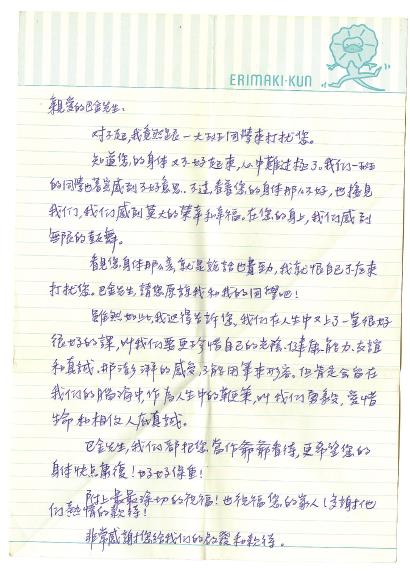 ERIMAKI·KUN
親愛的巴金先生:
对不起,我竟然跟一大班同學來打扰您。
知道您的身体又不好起來,心中難过極了。我們一班
的同學甚至感到不好意思。不过,看着您的身体那么不好,也接見
我們,我們感到莫大的榮幸和幸福。在您的身上,我們感到
無限的鼓舞。
看見您身体那么差,就是說話也費勁,我就恨自己不应來
打扰您。巴金先生,請您原諒我和我的同學吧!
雖然如此,我还得告訴您,我們在人生中又上了一堂很好
很好的課,叫我們要更珍惜自己的光陰、健康、能力、友誼
和真誠。那澎湃的感受,不能用筆來形容。但肯定会留在
我們的腦海中,作為人生中的鞭策,叫我們勇敢、愛惜
生命和相信人应真誠。
巴金先生,我們都把您當作爺爺看待,更希望您的
身体快点康復!好好保重!
附上最最深切的祝福!也祝福您的家人!多謝他
們熱情的款待!
非常感謝您給我們的啟發和款待。